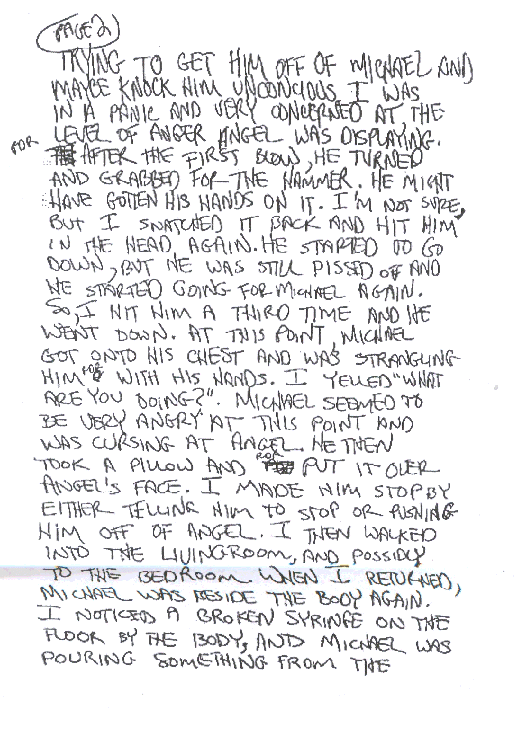 PAGE 2
TRYING TO GET HIM OFF OF MICHAEL AND
MAYBE KNOCK HIM UNCONCIOUS. I WAS
IN A PANIC AND VERY CONCERNED AT THE
LEVEL OF ANGER ANGEL WAS DISPLAYING.
AFTER THE FIRST BLOW, HE TURNED
AND GRABBED FOR THE HAMMER. HE MIGHT
HAVE GOTTEN HIS HANDS ON IT. I'M NOT SURE,
BUT I SNATCHED IT BACK AND HIT HIM
IN THE HEAD AGAIN. HE STARTED TO GO
DOWN, BUT HE WAS STILL PISSED OFF AND
HE STARTED GOING FOR MICHAEL AGAIN.
SO, I HIT HIM A THIRD TIME AND HE
WENT DOWN. AT THIS POINT, MICHAEL
GOT ONTO HIS CHEST AND WAS STRANGLING
HIM WITH HIS HANDS. I YELLED "WHAT
ARE YOU DOING?". MICHAEL SEEMED TO
BE VERY ANGRY AT THIS POINT AND
WAS CURSING AT ANGEL. HE THEN
TOOK A PILLOW AND PUT IT OVER
ANGEL'S FACE. I MADE HIM STOP BY
EITHER TELLING HIM TO STOP OR PUSHING
HIM OFF OF ANGEL. I THEN WALKED
INTO THE LIVINGROOM, AND POSSIBLY
TO THE BEDROOM. WHEN I RETURNED,
MICHAEL WAS BESIDE THE BODY AGAIN.
I NOTICED A BROKEN SYRINGE ON THE
FLOOR BY THE BODY, AND MICHAEL WAS
POURING SOMETHING FROM THE